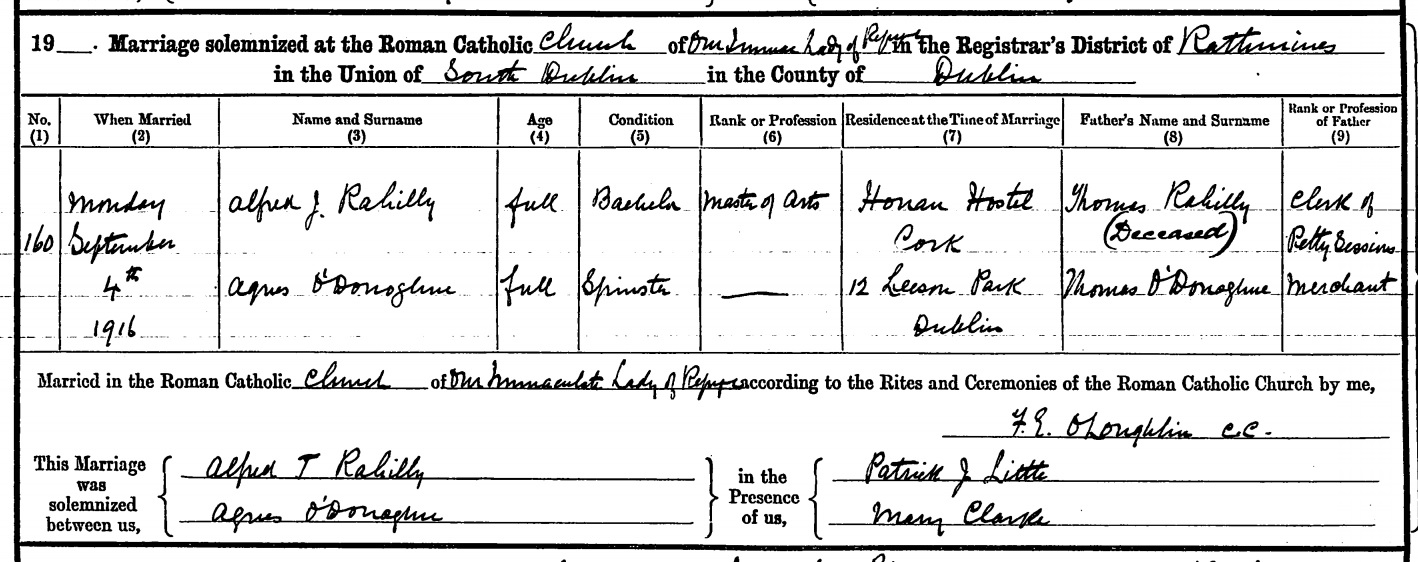 19___. Marriage solemnized at the Roman Catholic Church of Our Immac Lady of Refuge in the Registrar's District of Rathmines
in the Union of South Dublin in the County of Dublin
No. (1) When Married (2) Name and Surname (3) Age (4) Condition (5) Rank or Profession (6) Residence at the Time of Marriage (7) Father's Name and Surname (8) Rank or Profession of Father (9)
Monday Alfred J. Rahilly full Bachelor Master of Arts Honan Hostel Thomas Rahilly Clerk of
160 September Cork (Deceased) Petty Sessions
4th Agnes O'Donoghue full Spinster — 12 Leeson Park Thomas O'Donoghue Merchant
1916 Dublin
Married in the Roman Catholic Church of Our Immaculate Lady of Refuge according to the Rites and Ceremonies of the Roman Catholic Church by me,
F.E. O'Loughlin C.C.
This Marriage was solemnized between us, Alfred J Rahilly
Agnes O'Donoghue
in the Presence of us, Patrick J. Little
Mary Clarke